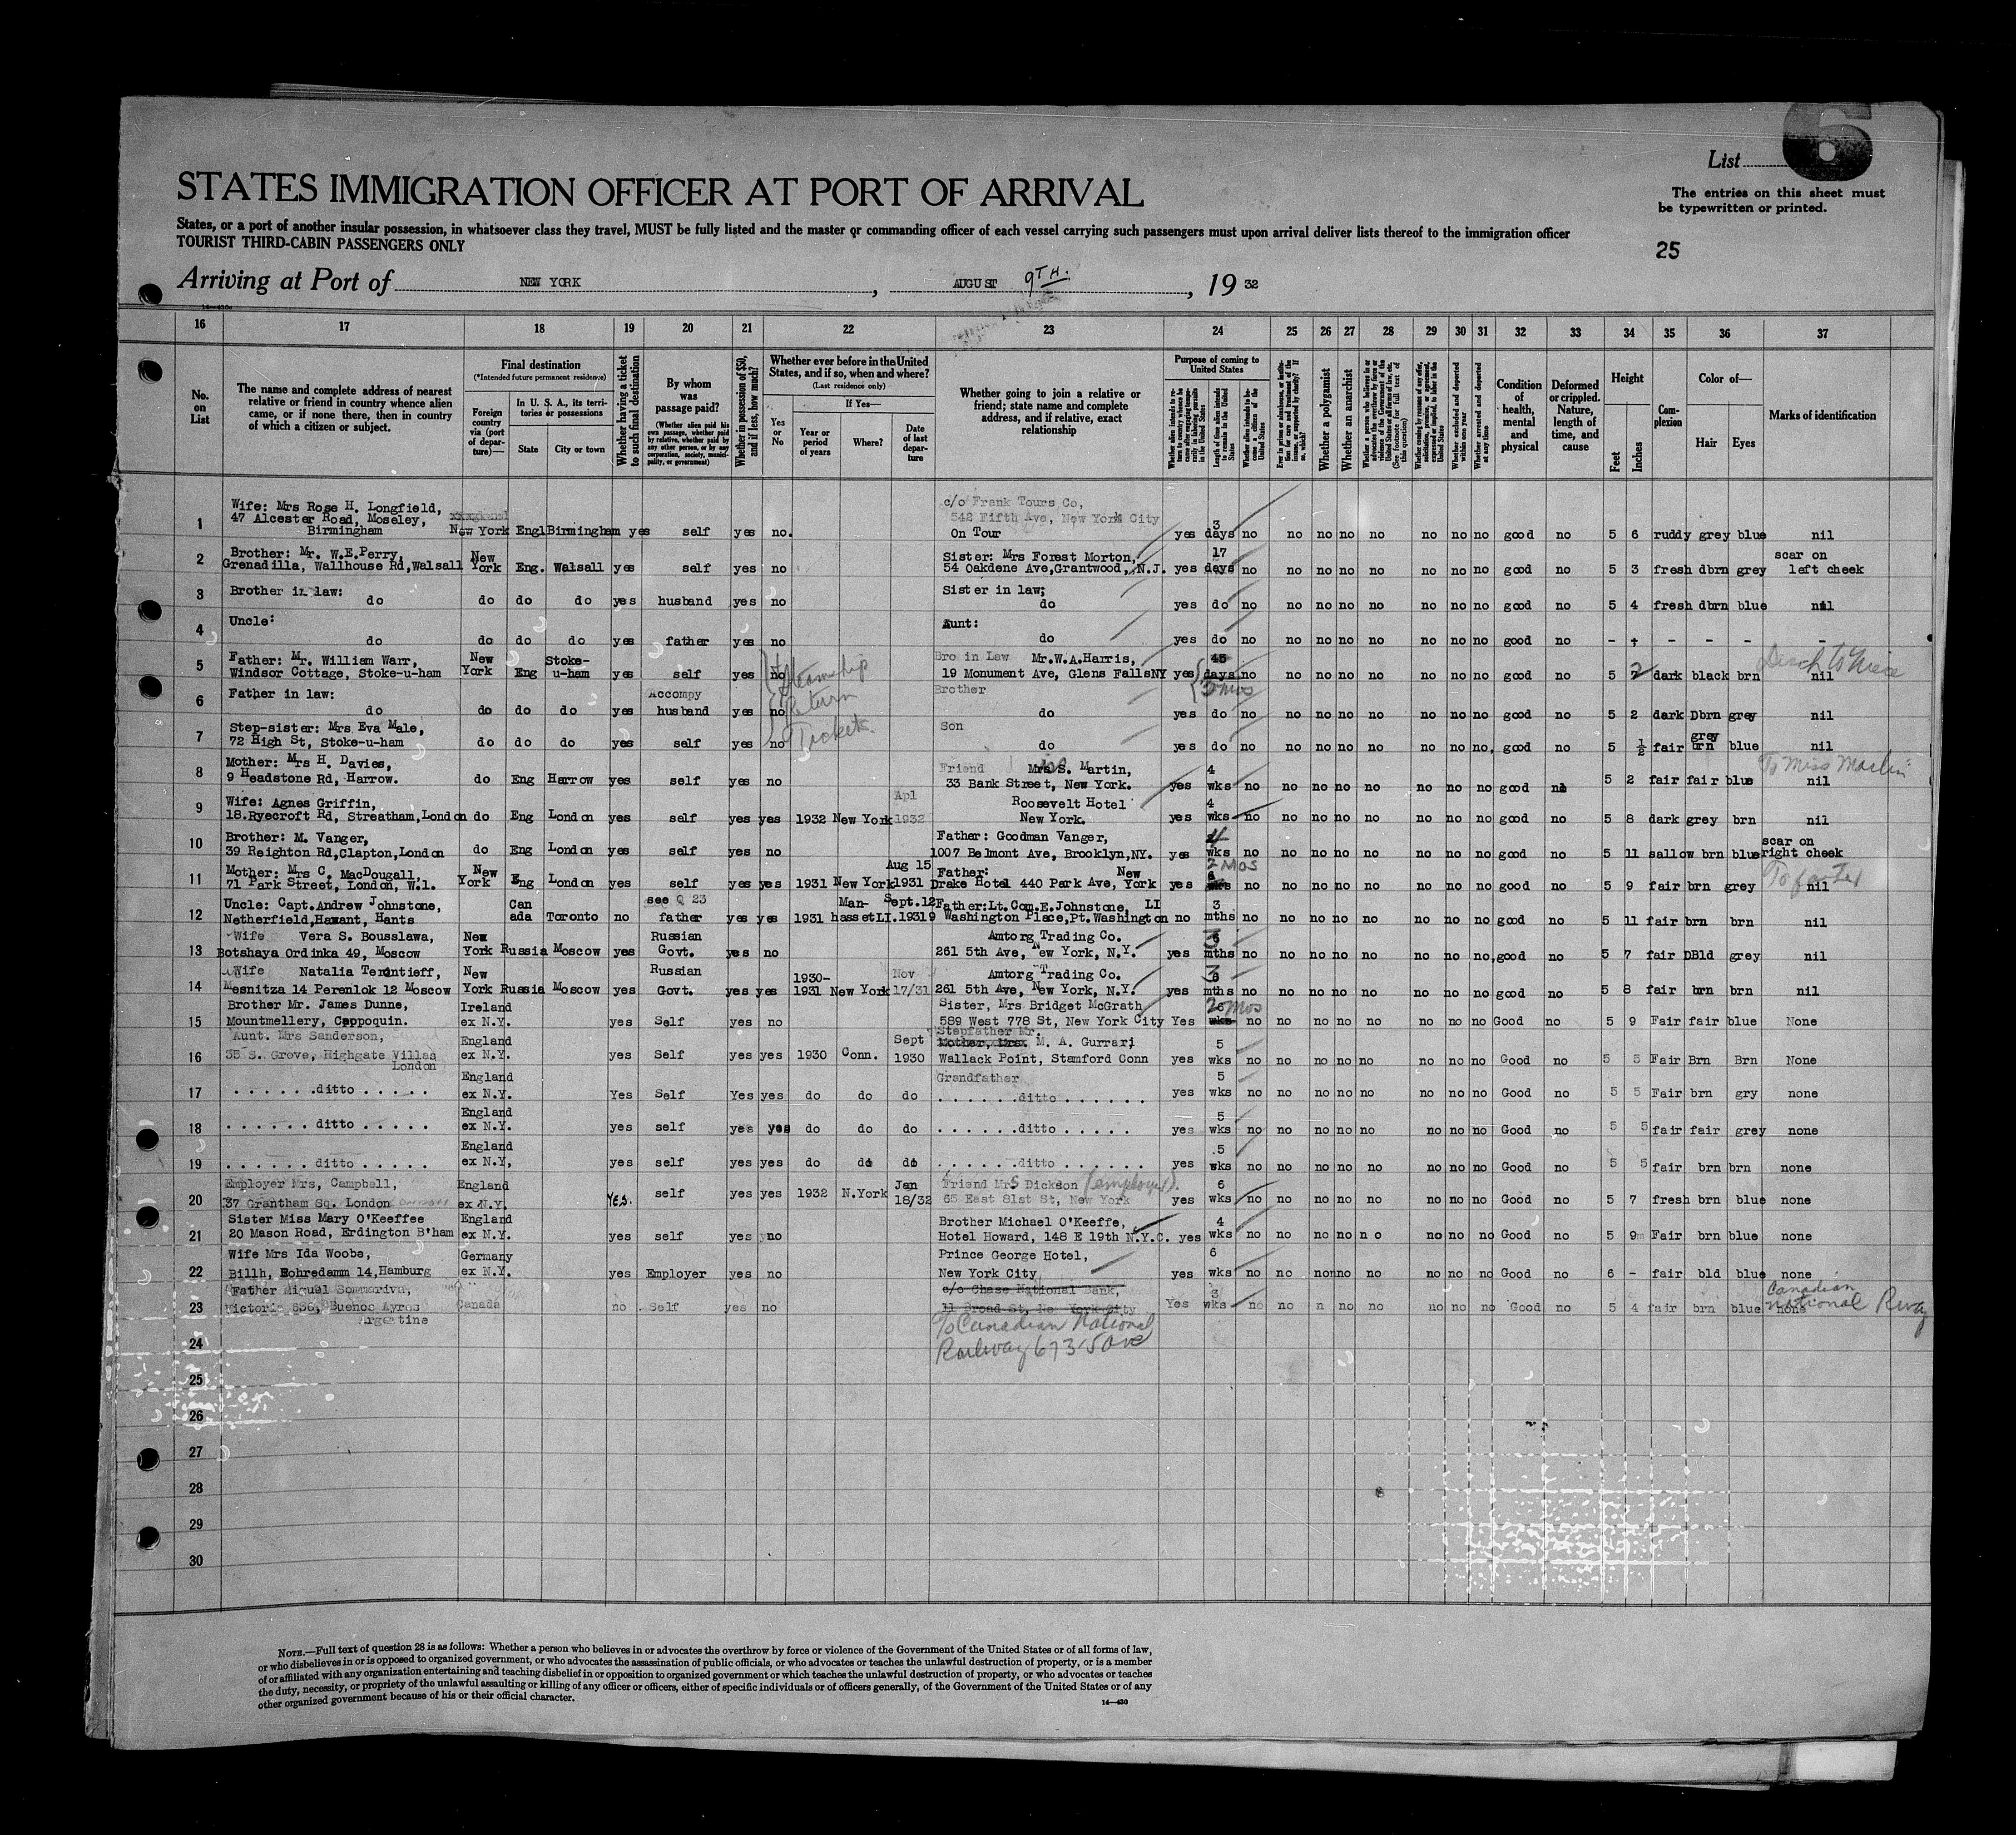 6
List
STATES IMMIGRATION OFFICER AT PORT OF ARRIVAL
The entries on this sheet must
be typewritten or printed.
States, or a port of another insular possession, in whatsoever class they travel, MUST be fully listed and the master or commanding officer of each vessel carrying such passengers must upon arrival deliver lists thereof to the immigration officer
TOURIST THIRD-CABIN PASSENGERS ONLY
25
Arriving at Port of NEW YORK, AUGUST 9TH., 1932
16 17 18 19 20 21 22 23 24 25 26 27 28 29 30 31 32 33 34 35 36 37
No. on List
The name and complete address of nearest relative or friend in country whence alien came, or if none there, then in country of which a citizen or subject.
Final destination
(*Intended future permanent residence)
Foreign country via (port of departure)—
In U. S. A., its territories or possessions
State
City or town
Whether having a ticket to such final destination
By whom was passage paid?
(Whether alien paid his own passage, whether paid by relative, whether paid by any other person, or by any corporation, society, municipality, or government)
Whether in possession of $50, and if less, how much?
Whether ever before in the United States, and if so, when and where?
(Last residence only)
Yes or No
If Yes—
Year or period of years
Where?
Date of last departure
Whether going to join a relative or friend; state name and complete address, and if relative, exact relationship
Purpose of coming to United States
Length of time alien intends to remain in the United States
Whether alien intends to become a citizen of the United States
Whether a polygamist
Whether an anarchist
Whether excluded and deported within one year
Whether arrested and deported at any time
Condition of health, mental and physical
Deformed or crippled. Nature, length of time, and cause
Height
Feet
Inches
Complexion
Color of—
Hair
Eyes
Marks of identification
1 Wife: Mrs Rose H. Longfield, 47 Alcester Road, Moseley, Birmingham New York Engl Birmingham yes self yes no. c/o Frank Tours Co, 542 Fifth Ave, New York City On Tour yes 3 days no no no no no no no no good no 5 6 ruddy grey blue nil
2 Brother: Mr. W.E.Perry, Grenadilla, Wallhouse Rd,Walsall New York Eng. Walsall yes self yes no Sister: Mrs Forest Morton, 54 Oakdene Ave,Grantwood, N.J. yes 17 days no no no no no no no no good no 5 3 fresh dbrn grey scar on left cheek
3 Brother in law: do do do do yes husband yes no Sister in law; do yes do no no no no no no no no good no 5 4 fresh dbrn blue nil
4 Uncle: do do do do yes father yes no Aunt: do yes do no no no no no no no no good no - - - - - -
5 Father: Mr. William Warr, Windsor Cottage, Stoke-u-ham New York Eng Stoke-u-ham yes self yes no Steamship Return Tickets Bro in Law Mr.W.A.Harris, 19 Monument Ave, Glens Falls NY yes 45 days 3 mos no no no no no no no no good no 5 2 dark black brn nil
6 Father in law: do do do do yes Accompy husband yes no Brother do yes do no no no no no no no no good no 5 2 dark Dbrn grey nil
7 Step-sister: Mrs Eva Male, 72 High St, Stoke-u-ham do do do yes self yes no Son do yes do no no no no no no no no, good no 5 ½ fair grey brn blue nil
8 Mother: Mrs H. Davies, 9 Headstone Rd, Harrow. do Eng Harrow yes self yes no Friend Mrs S. Martin, 33 Bank Street, New York. yes 4 wks no no no no no no no no good no 5 2 fair fair blue nil To Miss Martin
9 Wife: Agnes Griffin, 18.Ryecroft Rd, Streatham,London do Eng London yes self yes yes 1932 New York Apl 1932 Roosevelt Hotel New York. yes 4 wks no no no no no no no no good no 5 8 dark grey brn nil
10 Brother: M. Vanger, 39 Reighton Rd,Clapton,London do Eng London yes self yes no Father: Goodman Vanger, 1007 Belmont Ave, Brooklyn,NY. yes 4 wks no no no no no no no no good no 5 11 sallow brn blue scar on right cheek
11 Mother: Mrs C. MacDougall, 71 Park Street, London, W.1. New York Eng London yes self yes yes 1931 New York Aug 15 1931 Father: Drake Hotel 440 Park Ave, New York yes 2 MOS no no no no no no no no good no 5 9 fair brn grey nil
12 Uncle: Capt.Andrew Johnstone, Netherfield,Havant, Hants Canada Toronto no see Q 23 father yes yes 1931 Manhasset LI. Sept.12 1931 Father:Lt.Com.E.Johnstone, LI 9 Washington Place,Pt.Washington no 3 mths no no no no no no no no good no 5 11 fair brn brn nil
13 Wife Vera S. Bousslawa, Botshaya Ordinka 49, Moscow New York Russia Moscow yes Russian Govt. yes no Amtorg Trading Co. 261 5th Ave, New York, N.Y. yes 3 mths no no no no no no no no, good no 5 7 fair DBld grey nil
14 Wife Natalia Terentieff, Mesnitza 14 Perenlok 12 Moscow New York Russia Moscow yes Russian Govt. yes yes 1930-1931 New York Nov 17/31 Amtorg Trading Co. 261 5th Ave, New York, N.Y. yes 3 mths no no no no no no no no good no 5 8 fair brn brn nil
15 Brother Mr. James Dunne, Mountmellery, Cappoquin. Ireland ex N.Y. yes Self yes no Sister, Mrs Bridget McGrath 589 West 778 St, New York City Yes 2 Mos no no no no no no no no Good no 5 9 Fair fair blue None
16 Aunt. Mrs Sanderson, 35 S. Grove, Highgate Villas London England ex N.Y. yes Self yes yes 1930 Conn. Sept 1930 Stepfather Mr. M. A. Gurrari Wallack Point, Stamford Conn yes 5 wks no no no no no no no no Good no 5 5 Fair Brn Brn None
17 ......ditto..... England ex N.Y. Yes Self Yes yes do do do Grandfather ......ditto...... yes 5 wks no no no no no no no no Good no 5 5 Fair brn gry none
18 ......ditto..... England ex N.Y. yes self yes yes do do do ......ditto..... yes 5 wks no no no no no no no no Good no 5 5 fair fair grey none
19 ......ditto..... England ex N.Y, yes self yes yes do do do ......ditto...... yes 5 wks no no no no no no no no Good no 5 5 fair brn brn none
20 Employer Mrs, Campbell, 37 Grantham Sq. London England ex N.Y. YES. self yes yes 1932 N.York Jan 18/32 Friend Mrs Dickson (employer). 65 East 81st St, New York yes 6 wks no no no no no no no no Good no 5 7 fresh brn blue none
21 Sister Miss Mary O'Keeffee 20 Mason Road, Erdington B'ham England ex N.Y. yes self yes no Brother Michael O'Keeffe, Hotel Howard, 148 E 19th N.Y.C. yes 4 wks no no no no no no no no Good no 5 9 Fair brn blue none
22 Wife Mrs Ida Woobe, Billh, Rohredamm 14,Hamburg Germany ex N.Y. yes Employer yes no Prince George Hotel, New York City yes 6 wks no no no no no no no no Good no 6 - fair bld blue none
23 Father Miguel Sommariva, Victoria 836, Buenos Ayres Argentine Canada no Self yes no c/o Chase National Bank, 11 Broad St, New York City c/o Canadian National Railway 673-5 Ave Yes 3 wks no no n no no no no no Good no 5 4 fair brn blue none Canadian National Rway
24
25
26
27
28
29
30
NOTE.—Full text of question 28 is as follows: Whether a person who believes in or advocates the overthrow by force or violence of the Government of the United States or of all forms of law,
or who disbelieves in or is opposed to organized government, or who advocates the assassination of public officials, or who advocates or teaches the unlawful destruction of property, or is a member
of or affiliated with any organization entertaining and teaching disbelief in or opposition to organized government or which teaches the unlawful destruction of property, or who advocates or teaches
the duty, necessity, or propriety of the unlawful assaulting or killing of any officer or officers, either of specific individuals or of officers generally, of the Government of the United States or of any
other organized government because of his or their official character.
14—430